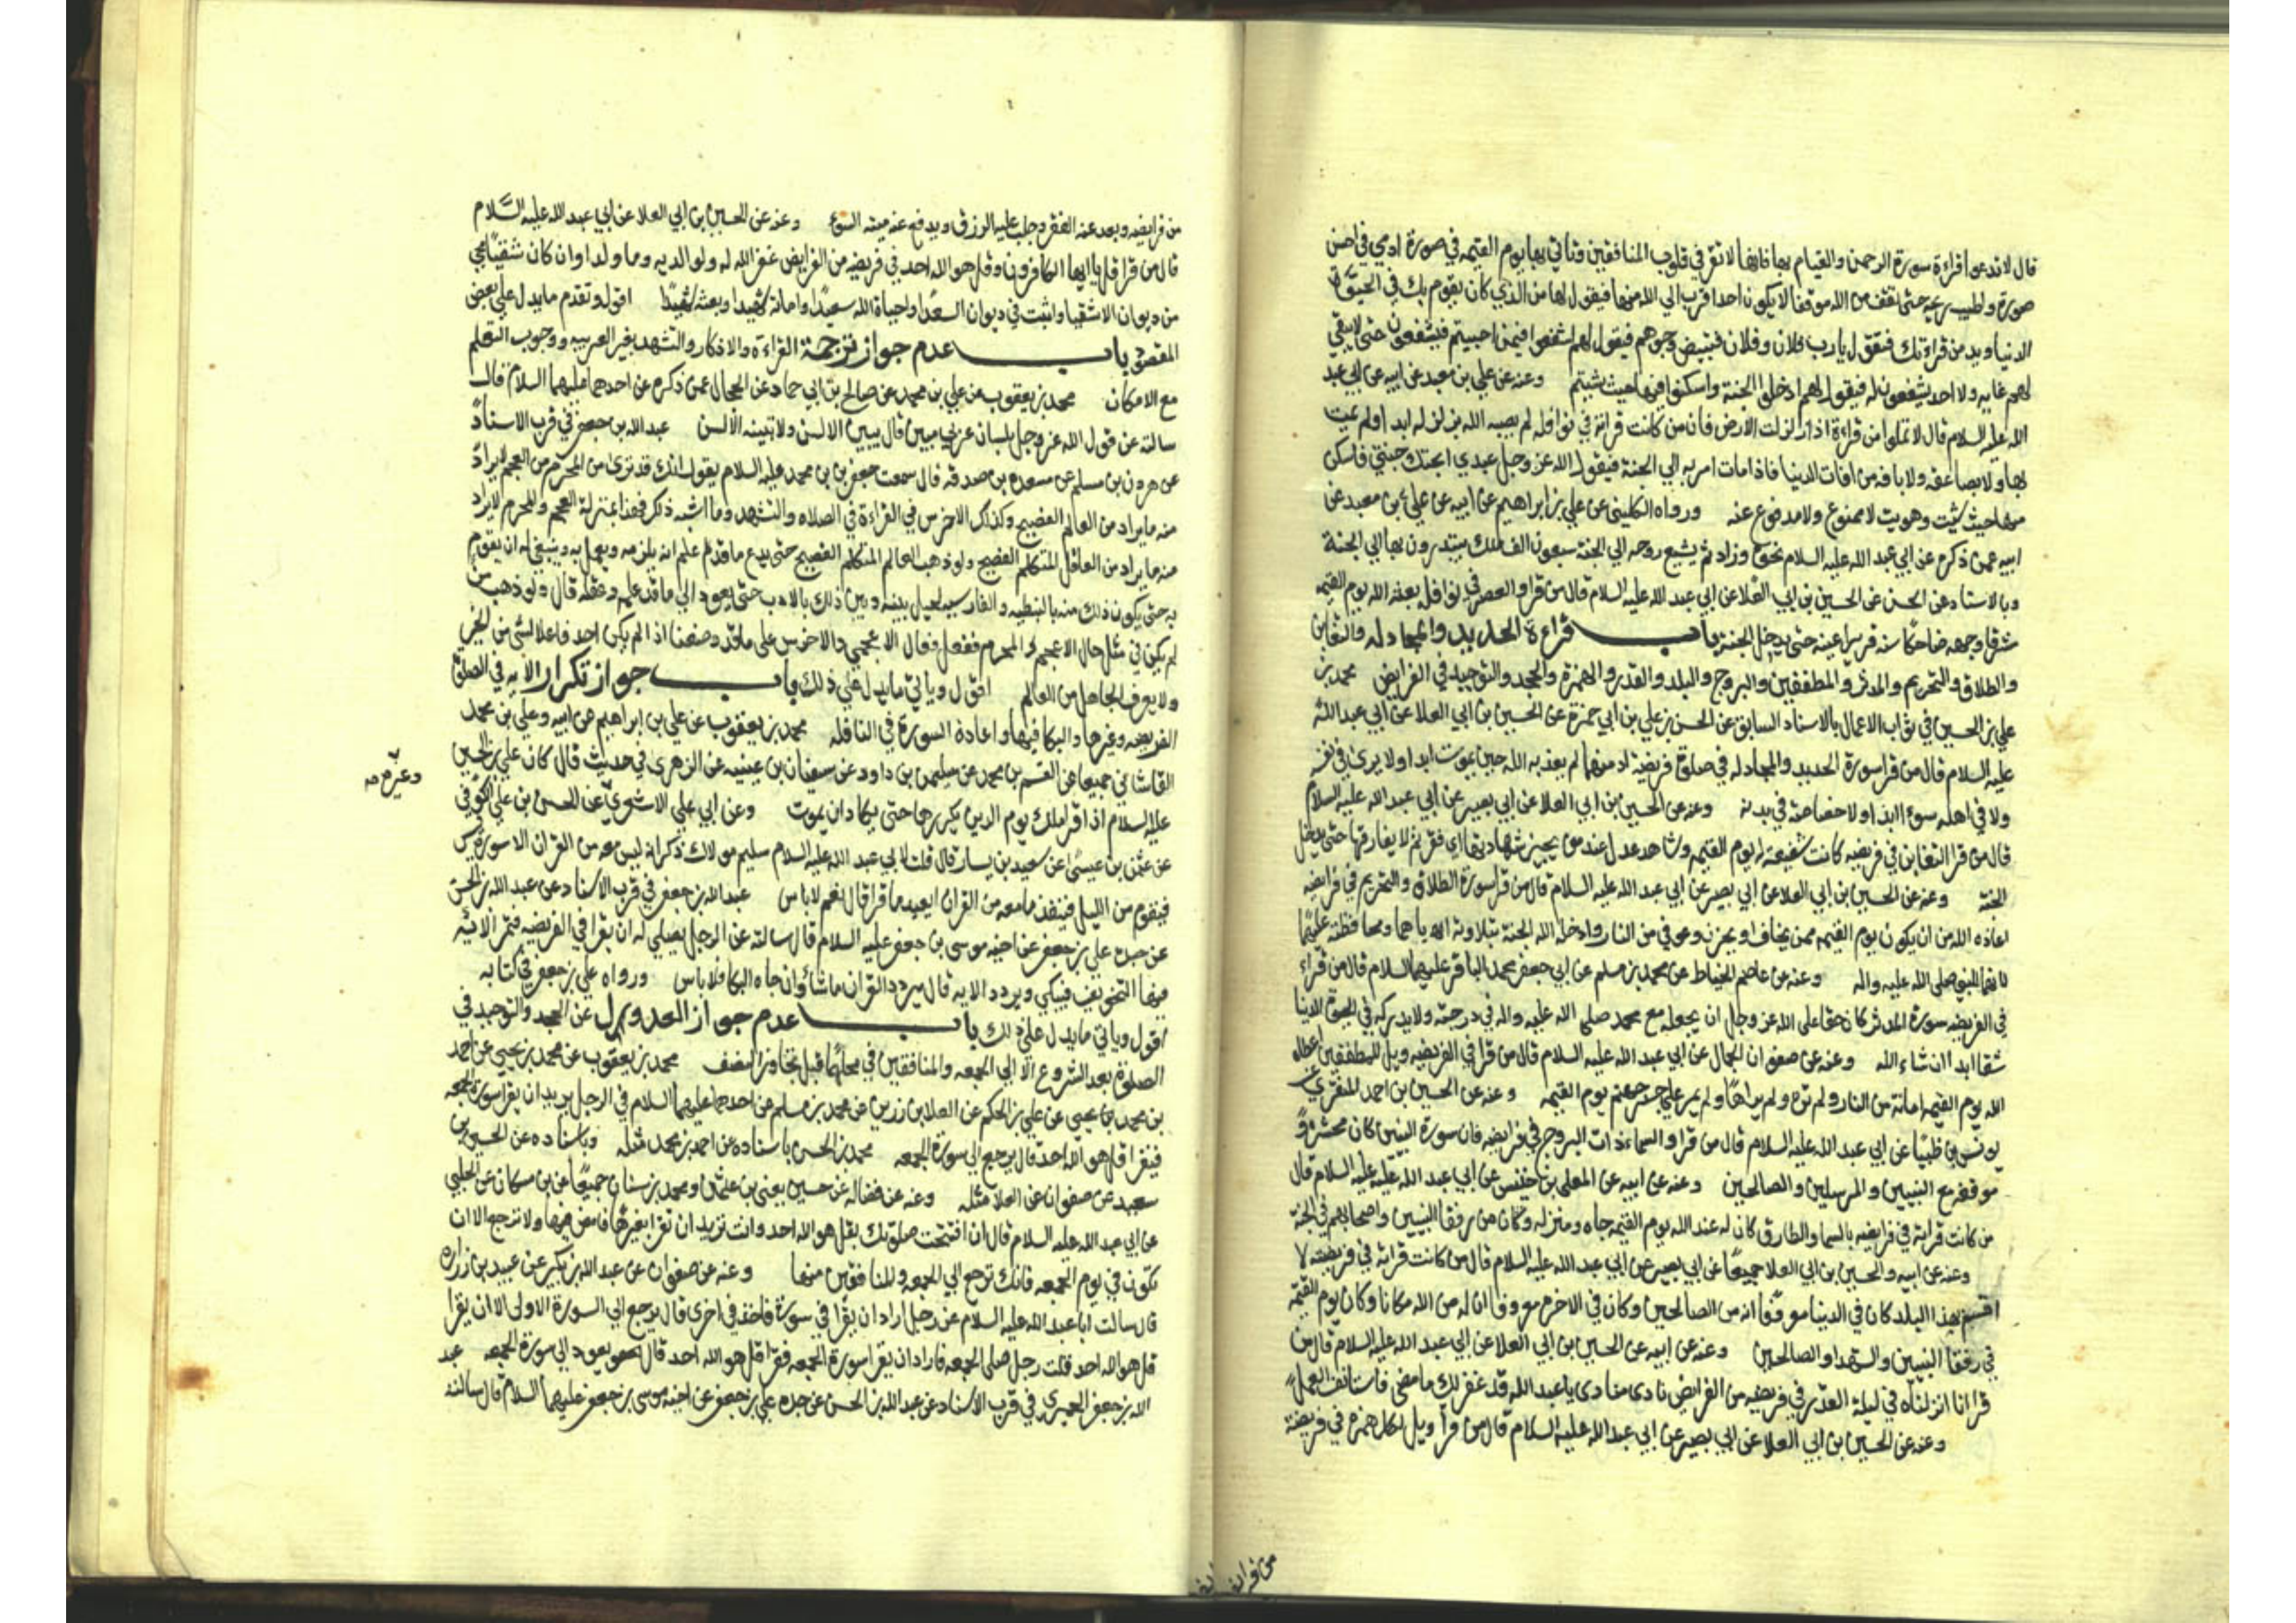 قال لا تدعوا قراءة سورة الرحمن والقيام بها فانها لا تقر في قلوب المنافقين وتاتي بها يوم القيمه في صورة ادمي في احسن
صورة واطيب ريح حتى تقف من الله موقفا لا يكون احد اقرب الى الله منها فيقول لها من الذي كان يقوم بك في الحيوة
الدنيا ويدمن قراءتك فتقول يا رب فلان وفلان فتبيض وجوههم فيقول لهم اشفعوا فيمن احببتم فيشفعون حتى لا يبقي
لهم غايه ولا احد يشفعون له فيقول لهم ادخلوا الجنة واسكنوا فيها حيث شيتم وعنه عن علي بن معبد عن ابيه عن ابي عبد
الله عليه السلام قال لا تملوا من قراءة اذا زلزلت الارض فان من كانت قراته في نوافله لم يصبه الله بزلزله ابدا ولم يمت
بها ولا بصاعقه ولا بافه من افات الدنيا فاذا مات امر به الي الجنة فيقول الله عز وجل عبدي ابحتك جنتي فاسكن
منها حيث شيت وهويت لا ممنوع ولا مدفوع عنه ورواه الكليني عن علي بن ابراهيم عن ابيه عن علي بن معبد عن
ابيه عمن ذكره عن ابي عبد الله عليه السلام نحوه وزاد ثم يشيع روحه الي الجنة سبعون الف ملك يبتدرون بها الي الجنة
وبالاسناد عن الحسن عن الحسين بن ابي العلا عن ابي عبد الله عليه السلام قال من قرا والعصر في نوافله بعثه الله يوم القيمه
مشرقا وجهه ضاحكا سنه قريرا عينه حتى يدخل الجنة باب قراءة الحديد والمجادله والتغابن
والطلاق والتحريم والمدثر والمطففين والبروج والبلد والقدر والهمزة والجحد والتوحيد في الفرايض محمد بن
علي بن الحسين في ثواب الاعمال بالاسناد السابق عن الحسن بن علي بن ابي حمزة عن الحسين بن ابي العلا عن ابي عبد الله
عليه السلام قال من قرا سورة الحديد والمجادله في صلوة فريضة ادمنها لم يعذبه الله حين يموت ابدا ولا يرى في نفسه
ولا في اهله سوءا ابدا ولا خصاصة في بدنه وعنه عن الحسين بن ابي العلا عن ابي بصير عن ابي عبد الله عليه السلام
قال من قرا التغابن في فريضه كانت شفيعة له يوم القيمه وشاهد عدل عند من يجيز شهادتها ثم لا يفارقها حتى يدخل
الجنة وعنه عن الحسين بن ابي العلا عن ابي بصير عن ابي عبد الله عليه السلام قال من قرا سورة الطلاق والتحريم في فرايضه
اعاذه الله من ان يكون يوم القيمه ممن يخاف او يحزن وعوفي من النار وادخله الله الجنة بتلاوته اياهما ومحافظته عليهما
لانهما للنبي صلى الله عليه واله وعنه عن عاصم الخياط عن محمد بن مسلم عن ابي جعفر محمد الباقر عليهما السلام قال من قراء
في الفريضه سورة المدثر كان حقا على الله عز وجل ان يجعله مع محمد صلى الله عليه واله في درجته ولا يدركه في الحيوة الدنيا
شقا ابدا ان شاء الله وعنه عن صفوان الجمال عن ابي عبد الله عليه السلام قال من قرا في الفريضه ويل للمطففين اعطاه
الله يوم القيمه امانة من النار ولم تره ولم يراها ولم يمر على جسر جهنم يوم القيمه وعنه عن الحسين بن احمد المنقري عن
يونس بن ظبيان عن ابي عبد الله عليه السلام قال من قرا والسماء ذات البروج في فرايضه فان سورة النبيين كان محشره و
موقفه مع النبيين والمرسلين والصالحين وعنه عن ابيه عن المعلى بن خنيس عن ابي عبد الله عليه السلام قال
من كانت قراته في فرايضه بالسما والطارق كان له عند الله يوم القيمه جاه ومنزله وكان من رفقا النبيين واصحابهم في الجنة
وعنه عن ابيه والحسين بن ابي العلا جميعا عن ابي بصير عن ابي عبد الله عليه السلام قال من كانت قراته في فريضته لا
اقسم بهذا البلد كان في الدنيا معروفا انه من الصالحين وكان في الاخره معروفا ان له من الله مكانا وكان يوم القيمه
في رفقا النبيين والشهدا والصالحين وعنه عن ابيه عن الحسين بن ابي العلا عن ابي عبد الله عليه السلام قال من
قرا انا انزلناه في ليلة القدر في فريضه من الفرايض نادى مناد يا عبد الله قد غفر لك ما مضى فاستانف العمل
وعنه عن الحسين بن ابي العلا عن ابي بصير عن ابي عبد الله عليه السلام قال من قرأ ويل لكل همزه في فريضة
من فرايضه
من فرايضه وبعد عنه الفقر وجلب عليه الرزق ويدفع عنه ميته السوء وعنه عن الحسين بن ابي العلا عن ابي عبد الله عليه السلام
قال من قرا قل يا ايها الكافرون وقل هو الله احد في فريضه من الفرايض غفر الله له ولوالديه وما ولدا وان كان شقيا محي
من ديوان الاشقيا واثبت في ديوان السعدا واحياه الله سعيدا واماته شهيدا وبعثه شهيدا اقول وتقدم ما يدل على بعض
المقصود باب عدم جواز ترجمة القراءة والاذكار والتشهد بغير العربيه ووجوب التعلم
مع الامكان محمد بن يعقوب عن علي بن محمد عن صالح بن ابي حماد عن الحجال عمن ذكره عن احدهما عليهما السلام قال
سالته عن قول الله عز وجل بلسان عربي مبين قال يبين الالسن ولا تبينه الالسن عبد الله بن جعفر في قرب الاسناد
عن هرون بن مسلم عن مسعده بن صدقه قال سمعت جعفر بن محمد عليه السلام يقول انك قد ترى من المحرم من العجم لا يراد
منه ما يراد من العالم الفصيح وكذلك الاخرس في القراءة في الصلاه والتشهد وما اشبه ذلك فهذا بمنزلة العجم والمحرم لا يراد
منه ما يراد من العاقل المتكلم الفصيح ولو ذهب العالم المتكلم الفصيح حتى يدع ما قد علم انه يلزمه ويعمل به وينبغي له ان يقوم
به حتى يكون ذلك منه بالنبطيه والفارسيه لحيل بينه وبين ذلك بالادب حتى يعود الي ما قد علمه وعقله قال ولو ذهب من
لم يكن في مثل حال الاعجم المحرم ففعل فعال الاعجمي والاخرس على ما قد وصفنا اذا لم يكن احد فاعلا لشئ من الخير
ولا يعرف الجاهل من العالم اقول وياتي ما يدل على ذلك باب جواز تكرار الايه في الصلوة
الفريضه وغيرها والبكا فيها واعادة السورة في النافله محمد بن يعقوب عن علي بن ابراهيم عن ابيه وعلي بن محمد
القاشاني جميعا عن القسم بن محمد عن سليمن بن داود عن سفيان بن عيينه عن الزهري في حديث قال كان علي بن الحسين
عليه السلام اذا قرا ملك يوم الدين يكررها حتى يكاد ان يموت وعن ابي علي الاشعري عن الحسن بن علي الكوفي
عن عثمن بن عيسى عن سعيد بن يسار قال قلت لابي عبد الله عليه السلام سليم مولاك ذكر انه ليس معه من القران الا سورة يس
فيقوم من الليل فينفذ ما معه من القران ايعيد ما قرا قال نعم لا باس عبد الله بن جعفر في قرب الاسناد عن عبد الله بن الحسن
عن جده علي بن جعفر عن اخيه موسى بن جعفر عليه السلام قال سالته عن الرجل يصلي له ان يقرا في الفريضه فتمر الايه
فيها التخويف فيبكي ويردد الايه قال يردد القران ما شاء وان جاه البكا فلا باس ورواه علي بن جعفر في كتابه
اقول وياتي ما يدل على ذلك باب عدم جواز العدول عن الجحد والتوحيد في
الصلوة بعد الشروع الا الي الجمعه والمنافقين في محلهما قبل تجاوز النصف محمد بن يعقوب عن محمد بن يحيى عن احمد
بن محمد بن يحيى عن علي بن الحكم عن العلا بن رزين عن محمد بن مسلم عن احدهما عليهما السلام في الرجل يريد ان يقرا سورة الجمعه
فيقرا قل هو الله احد قال يرجع الي سورة الجمعه محمد بن الحسن باسناده عن احمد بن محمد مثله وباسناده عن الحسين بن
سعيد عن صفوان عن العلا مثله وعنه عن فضاله عن حسين يعني بن عثمن ومحمد بن سنان جميعا عن بن مسكان عن الحلبي
عن ابي عبد الله عليه السلام قال ان افتتحت صلوتك بقل هو الله احد وانت تريد ان تقرا بغيرها فامض فيها ولا ترجع الا ان
تكون في يوم الجمعه فانك ترجع الي الجمعه والمنافقين منها وعنه عن صفوان عن عبد الله بن بكير عن عبيد بن زراره
قال سالت ابا عبد الله عليه السلام عن رجل اراد ان يقرا في سورة فاخذ في اخرى قال يرجع الي السورة الاولى الا ان يقرا
قل هو الله احد قلت رجل صلى الجمعه فاراد ان يقرا سورة الجمعه فقرا قل هو الله احد قال يعود الي سورة الجمعه عبد
الله بن جعفر الحميري في قرب الاسناد عن عبد الله بن الحسن عن جده علي بن جعفر عن اخيه موسى بن جعفر عليهما السلام قال سالته